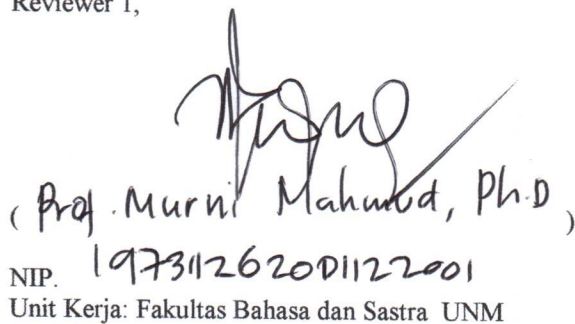 Reviewer 1,
( Prof. Murni Mahmud, Ph.D )
NIP. 197311262001122001
Unit Kerja: Fakultas Bahasa dan Sastra UNM